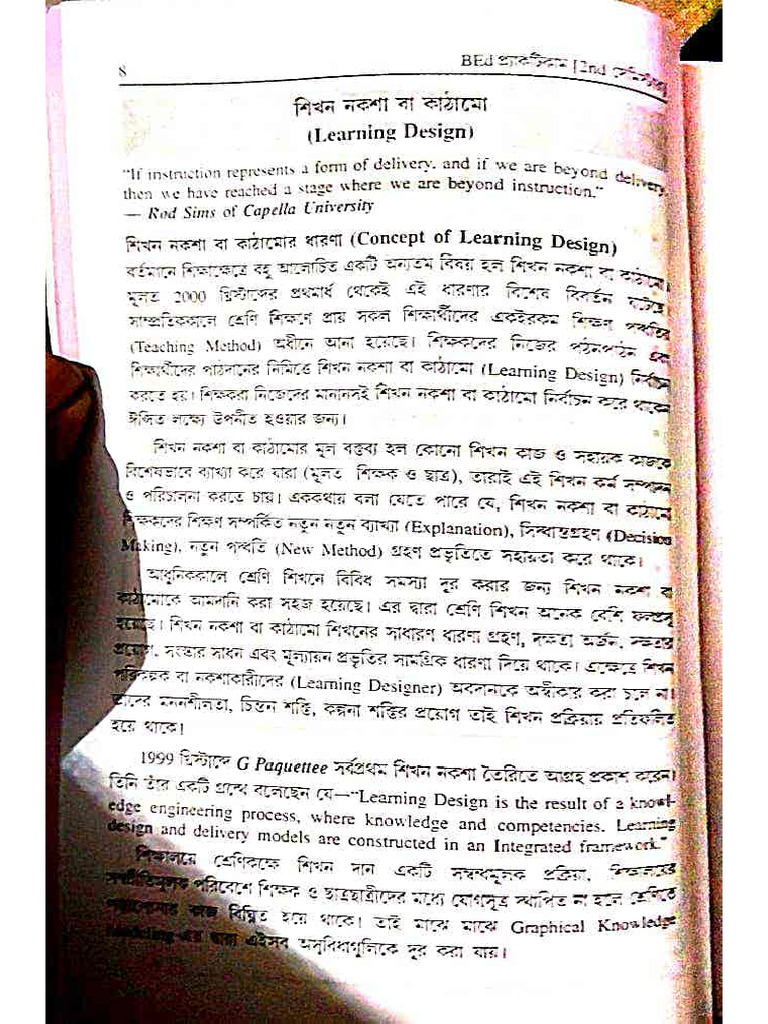 8
BEd প্র্যাকটিকাম [2nd সেমিস্টার]
শিখন নকশা বা কাঠামো
(Learning Design)
“If instruction represents a form of delivery, and if we are beyond delivery,
then we have reached a stage where we are beyond instruction.”
— Rod Sims of Capella University
শিখন নকশা বা কাঠামোর ধারণা (Concept of Learning Design)
বর্তমানে শিক্ষাক্ষেত্রে বহু আলোচিত একটি অন্যতম বিষয় হল শিখন নকশা বা কাঠামো।
মূলত 2000 খ্রিস্টাব্দের প্রথমার্ধ থেকেই এই ধারণার বিশেষ বিবর্তন ঘটেছে
সাম্প্রতিককালে শ্রেণি শিক্ষণে প্রায় সকল শিক্ষার্থীদের একইরকম শিক্ষণ পদ্ধতির
(Teaching Method) অধীনে আনা হয়েছে। শিক্ষকদের নিজের পঠনপাঠন এবং
শিক্ষার্থীদের পাঠদানের নিমিত্তে শিখন নকশা বা কাঠামো (Learning Design) নির্বাচন
করতে হয়। শিক্ষকরা নিজেদের মানানসই শিখন নকশা বা কাঠামো নির্বাচন করে থাকেন
ঈপ্সিত লক্ষ্যে উপনীত হওয়ার জন্য।
শিখন নকশা বা কাঠামোর মূল বক্তব্য হল কোনো শিখন কাজ ও সহায়ক কাজকে
বিশেষভাবে ব্যাখ্যা করে যারা (মূলত শিক্ষক ও ছাত্র), তারাই এই শিখন কর্ম সম্পাদন
ও পরিচালনা করতে চায়। এককথায় বলা যেতে পারে যে, শিখন নকশা বা কাঠামো
শিক্ষকদের শিক্ষণ সম্পর্কিত নতুন নতুন ব্যাখ্যা (Explanation), সিদ্ধান্তগ্রহণ (Decision
Making), নতুন পদ্ধতি (New Method) গ্রহণ প্রভৃতিতে সহায়তা করে থাকে।
আধুনিককালে শ্রেণি শিখনে বিবিধ সমস্যা দূর করার জন্য শিখন নকশা বা
কাঠামোকে আমদানি করা সহজ হয়েছে। এর দ্বারা শ্রেণি শিখন অনেক বেশি ফলপ্রসূ
হয়েছে। শিখন নকশা বা কাঠামো শিখনের সাধারণ ধারণা গ্রহণ, দক্ষতা অর্জন, দক্ষতার
প্রয়োগ, সংস্কার সাধন এবং মূল্যায়ন প্রভৃতির সামগ্রিক ধারণা দিয়ে থাকে। এক্ষেত্রে শিখন
পরিকল্পক বা নকশাকারীদের (Learning Designer) অবদানকে অস্বীকার করা চলে না।
তাদের মননশীলতা, চিন্তন শক্তি, কল্পনা শক্তির প্রয়োগ তাই শিখন প্রক্রিয়ায় প্রতিফলিত
হয়ে থাকে।
1999 খ্রিস্টাব্দে G Paquettee সর্বপ্রথম শিখন নকশা তৈরিতে আগ্রহ প্রকাশ করেন।
তিনি তাঁর একটি গ্রন্থে বলেছেন যে—“Learning Design is the result of a knowl-
edge engineering process, where knowledge and competencies. Learning
design and delivery models are constructed in an Integrated framework.”
শিক্ষালয়ে শ্রেণিকক্ষে শিখন দান একটি সম্বন্ধমূলক প্রক্রিয়া, শিক্ষালয়ের
পরিবেশে শিক্ষক ও ছাত্রছাত্রীদের মধ্যে যোগসূত্র স্থাপিত না হলে শ্রেণিতে
কাজ বিঘ্নিত হয়ে থাকে। তাই মাঝে মাঝে Graphical Knowledge
Modeling-এর দ্বারা এইসব অসুবিধাগুলিকে দূর করা যায়।